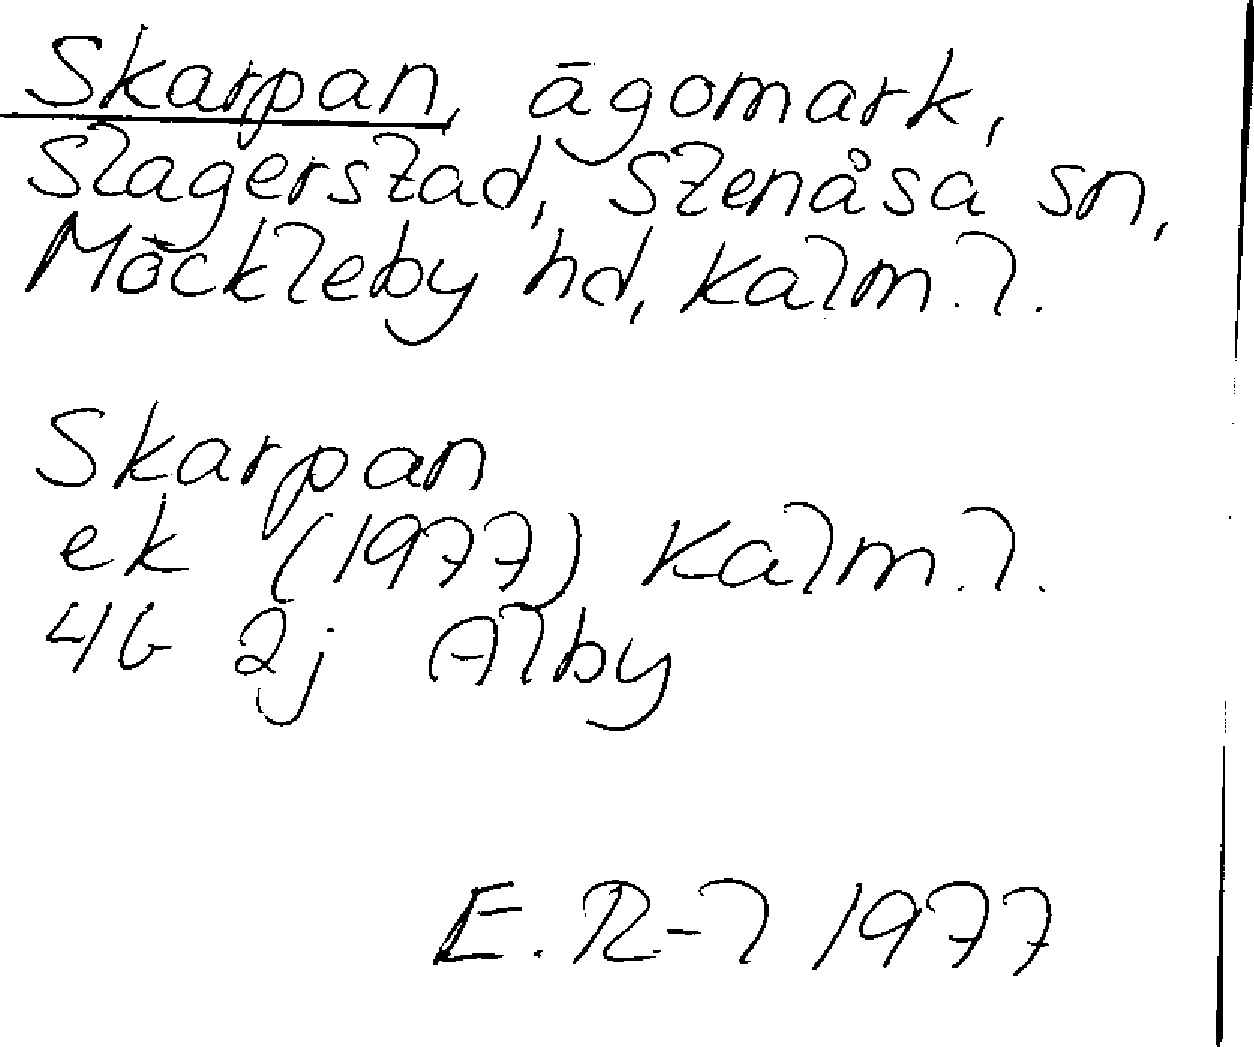 Skarpan, ägomark,
Slagerstad, Stenåsa sn,
Möckleby hd, Kalm. l.
Skarpan
ek (1977) Kalm. l.
4G 2j Alby
E. R-l 1977